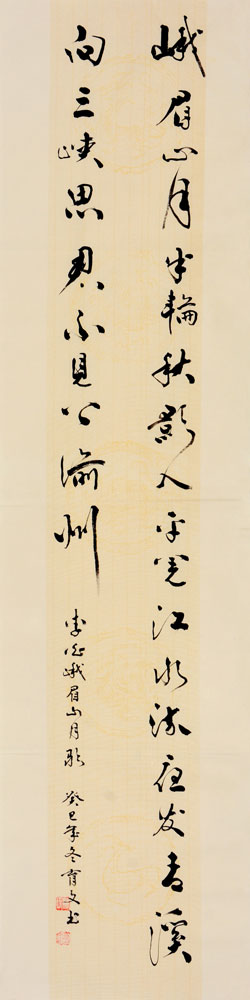 峨眉山月半輪秋影入平羌江水流夜发青溪
向三峡思君不見下渝州
李白峨眉山月歌 癸巳年冬育文书